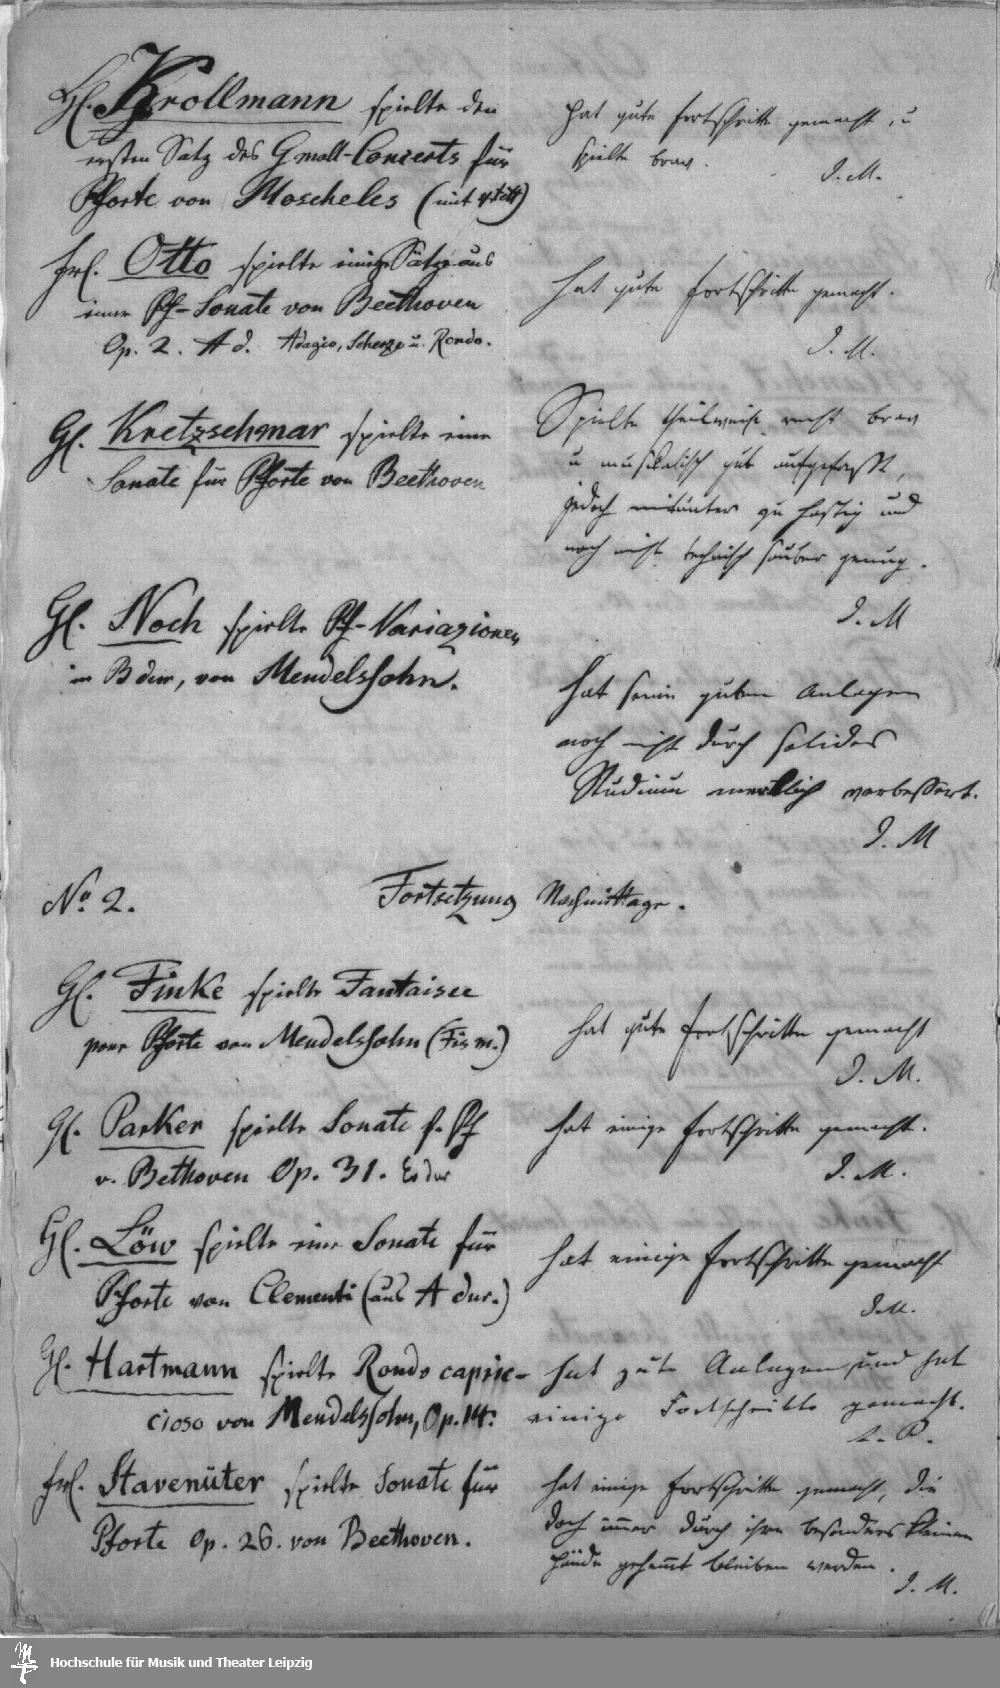 H. Krollmann spielte den
ersten Satz des Gmoll-Concerts für
Pforte von Moscheles (mit
hat gute Fortschritte gemacht, u
spielte brav.
I. M.
Frl. Otto spielte einige Sätze aus
einer Pf-Sonate von Beethoven
Op. 2. A d. Adagio, Scherzo u. Rondo.
hat gute Fortschritte gemacht.
I. M.
H. Kretzschmar spielte eine
Sonate für Pforte von Beethoven
Spielte theilweise recht brav
u musikalisch gut aufgefasst,
jedoch mitunter zu hastig und
noch nicht technisch sauber genug.
I. M
H. Noch spielte Pf-Variazionen
in B dur, von Mendelssohn.
hat seine guten Anlagen
noch nicht durch solides
Studium merklich verbessert.
I. M
No. 2. Fortsetzung Nachmittags.
H. Finke spielte Fantaisee
pour Pforte von Mendelssohn (Fis m.)
hat gute Fortschritte gemacht
I. M.
H. Parker spielte Sonate f. Pf
v. Bethoven Op. 31. Es dur
hat einige Fortschritte gemacht.
I. M.
H. Löw spielte eine Sonate für
Pforte von Clementi (aus A dur.)
hat einige Fortschritte gemacht
I M.
H. Hartmann spielte Rondo capric-
cioso von Mendelssohn, Op. 14.
hat gute Anlagen, und hat
einige Fortschritte gemacht.
L. P.
Frl. Stavenüter spielte Sonate für
Pforte Op. 26. von Beethoven.
hat einige Fortschritte gemacht, die
doch immer durch ihre besonders kleinen
Hände gehemt bleiben werden.
I. M.
Hochschule für Musik und Theater Leipzig